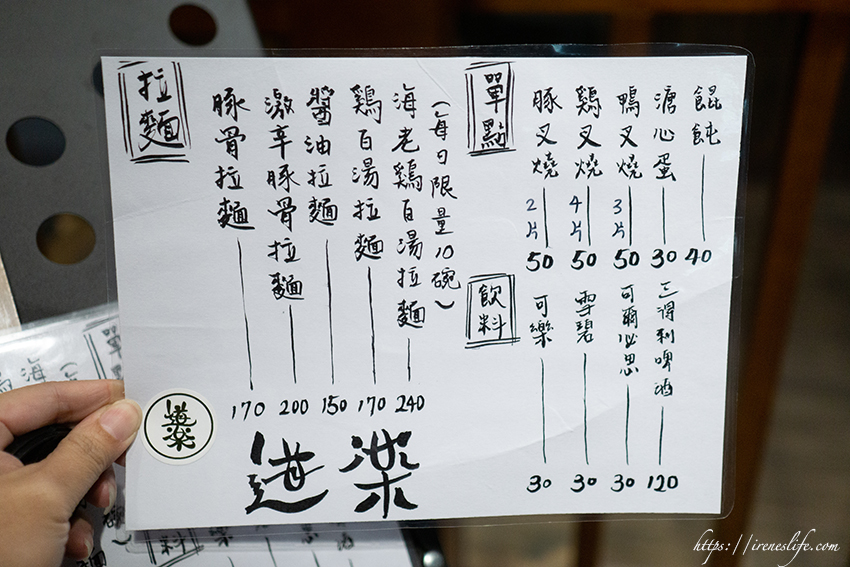 拉麵
豚骨拉麵 170
激辛豚骨拉麵 200
醬油拉麵 150
鷄百湯拉麵 170
海老鷄百湯拉麵 240
(每日限量10碗)
單點
豚叉燒 2片 50
鷄叉燒 4片 50
鴨叉燒 3片 50
溏心蛋 30
餛飩 40
飲料
可樂 30
雪碧 30
可爾必思 30
三得利啤酒 120
道樂
道樂
https://ireneslife.com